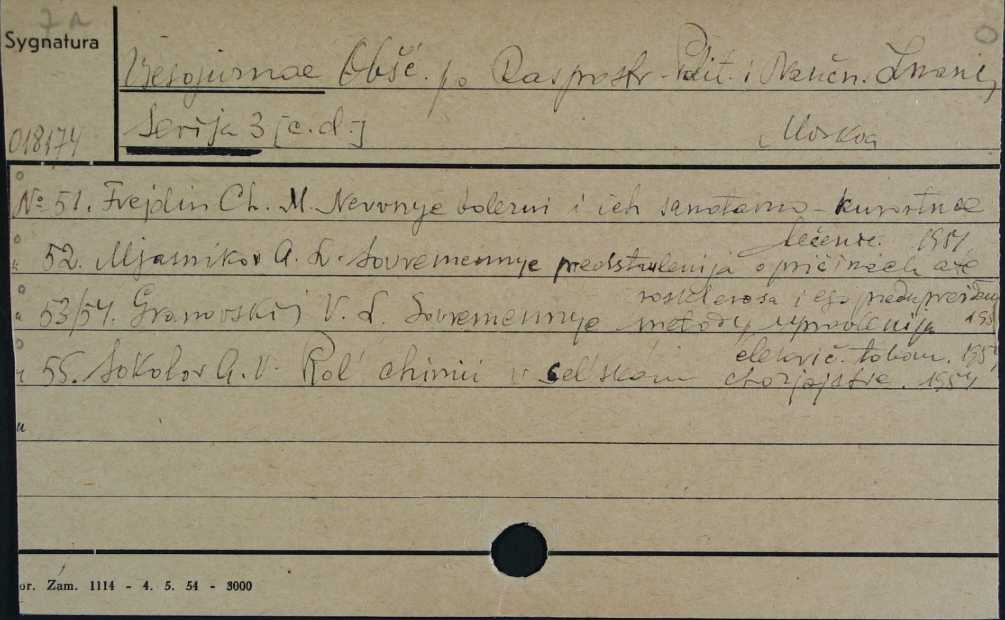 7
Sygnatura
Vsesojuznoe Obšč. po Rasprostr. Polit. i Naučn. Znanij,
018174
Serija 3 [c.d.]
Moskva
№ 51. Frejdin Ch. M. Nervnye bolezni i ich sanatorno-kurortnoe
lečenie. 1954
52. Mjasnikov A. L. Sovremennye predstavlenija o pričinach ate
rosklerosa i ego
53/54. Granovskij V. L. Sovremennye metody upravlenija
električ. tokom. 195
55. Sokolov A. V. Rol' chimii v sel'skom chozjajstve. 1954
or. Zam. 1114 - 4. 5. 54 - 3000